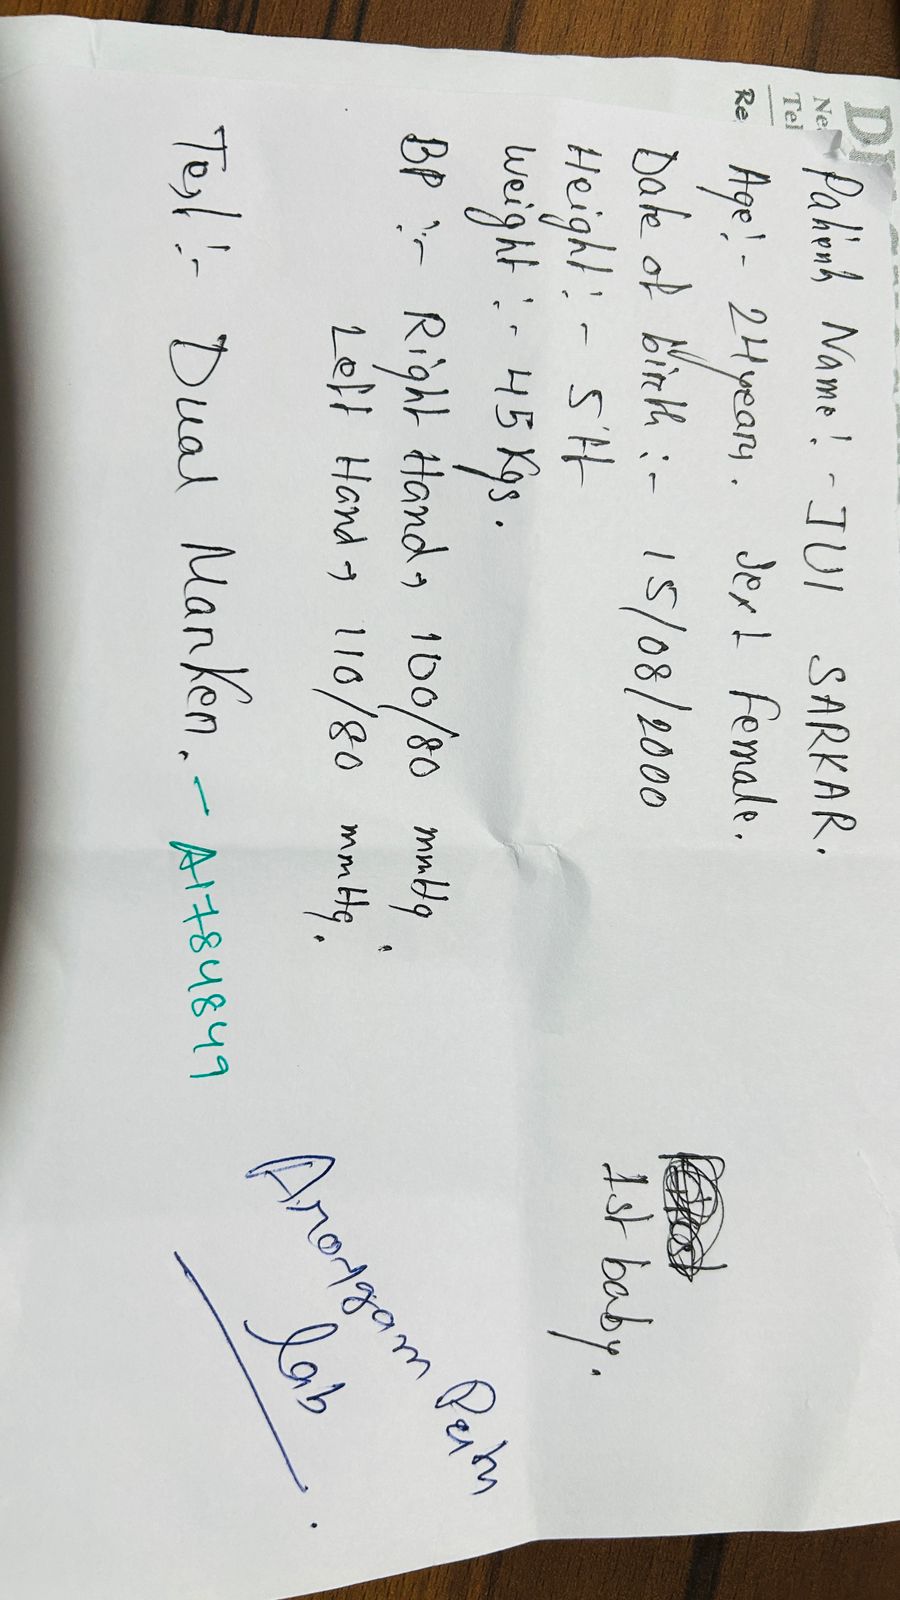 Re
Tel
Patient Name:- JUI SARKAR.
Age:- 24years. Sex:- Female.
Date of birth:- 15/08/2000
Height:- 5ft
1st baby.
Weight:- 45Kgs.
BP:- Right Hand→ 100/80 mmHg.
Left Hand→ 110/80 mmHg.
Test:- Dual Marker. - A1784849
lab